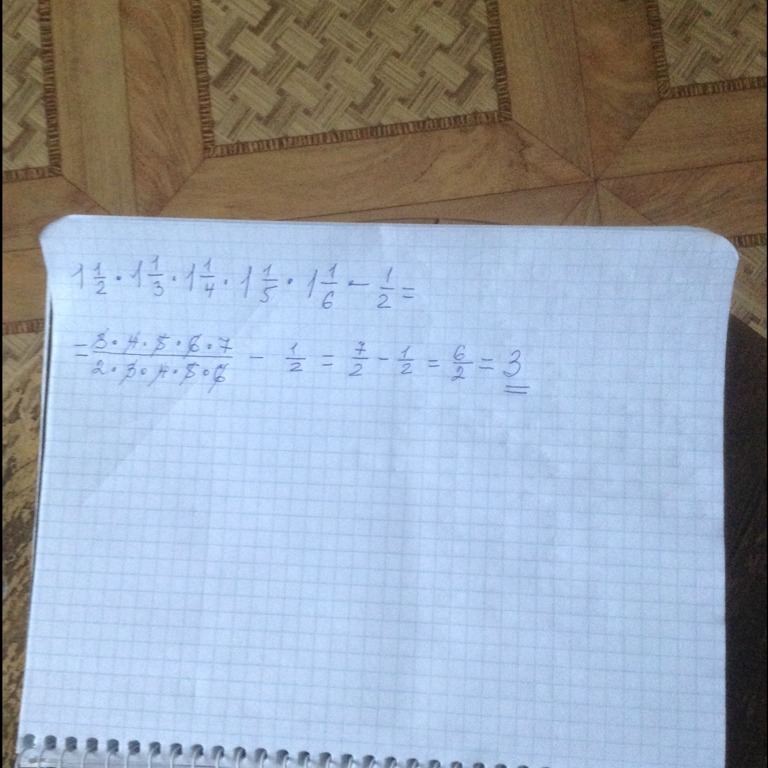 1 1/2 · 1 1/3 · 1 1/4 · 1 1/5 · 1 1/6 - 1/2 =
= 3·4·5·6·7 / 2·3·4·5·6 - 1/2 = 7/2 - 1/2 = 6/2 = 3